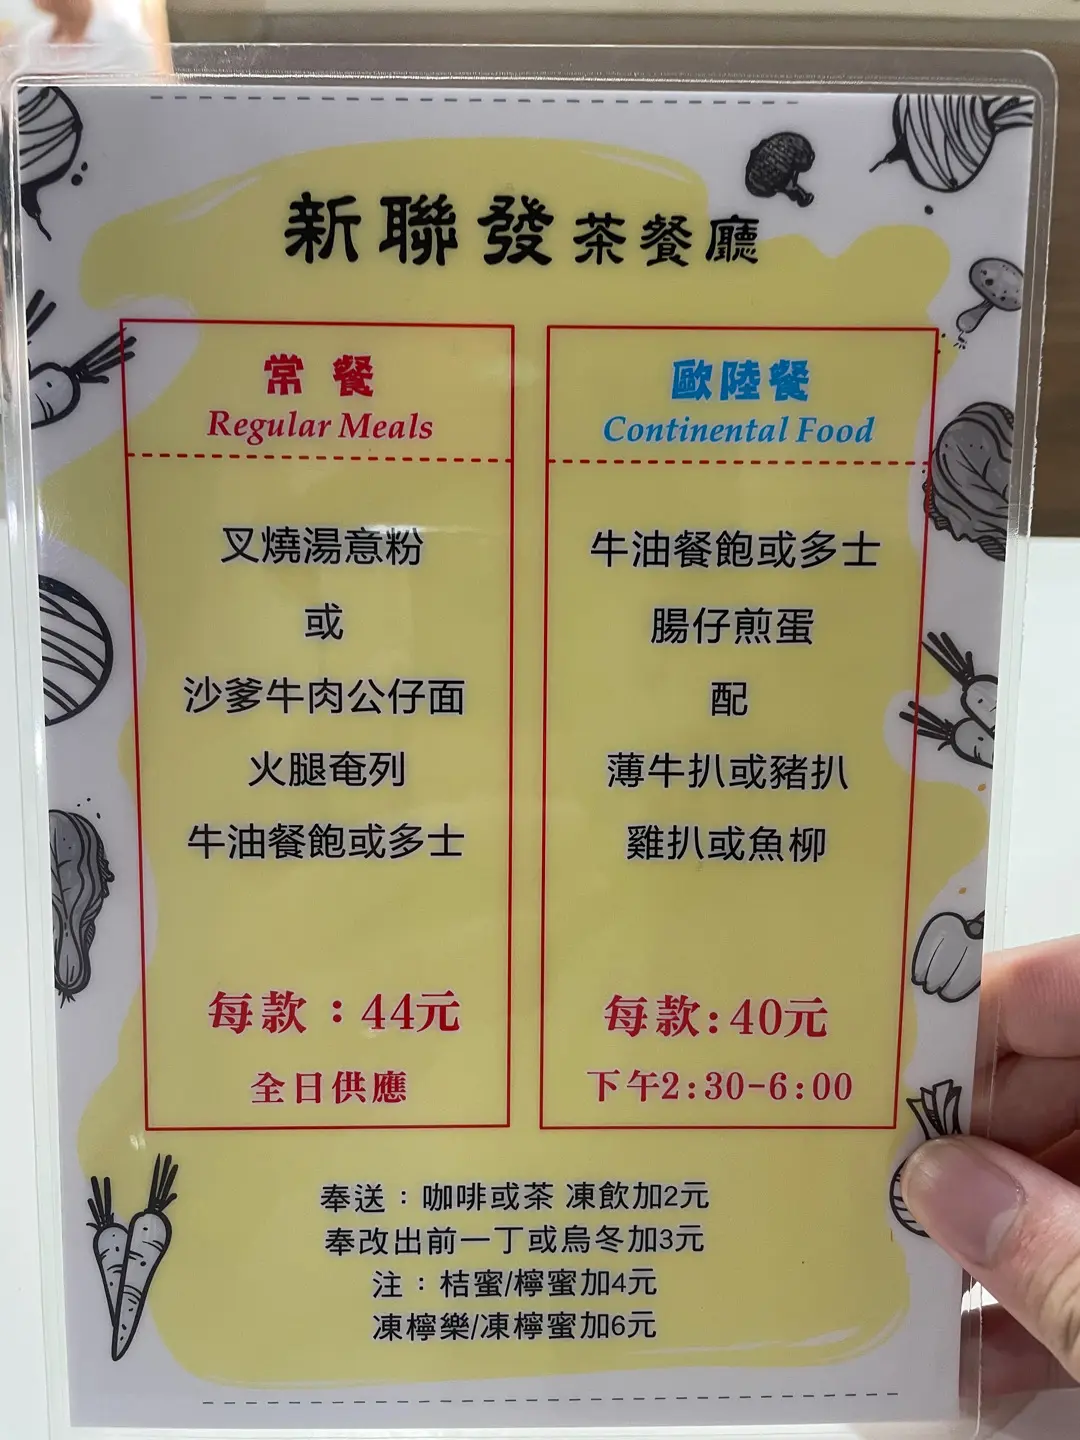 新聯發茶餐廳
常餐
Regular Meals
叉燒湯意粉
或
沙爹牛肉公仔面
火腿奄列
牛油餐飽或多士
每款：44元
全日供應
歐陸餐
Continental Food
牛油餐飽或多士
腸仔煎蛋
配
薄牛扒或豬扒
雞扒或魚柳
每款:40元
下午2:30-6:00
奉送：咖啡或茶 凍飲加2元
奉改出前一丁或烏冬加3元
注：桔蜜/檸蜜加4元
凍檸樂/凍檸蜜加6元